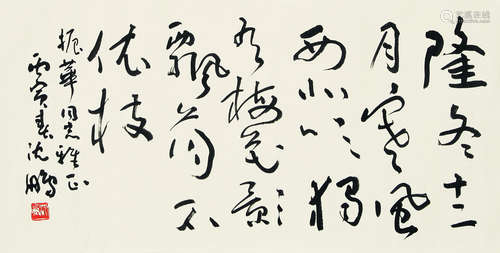 隆冬十二
月寒風
西北吹獨
有梅花影
飄蕩不
依枝
振華同志雅正
丙寅春沈鵬